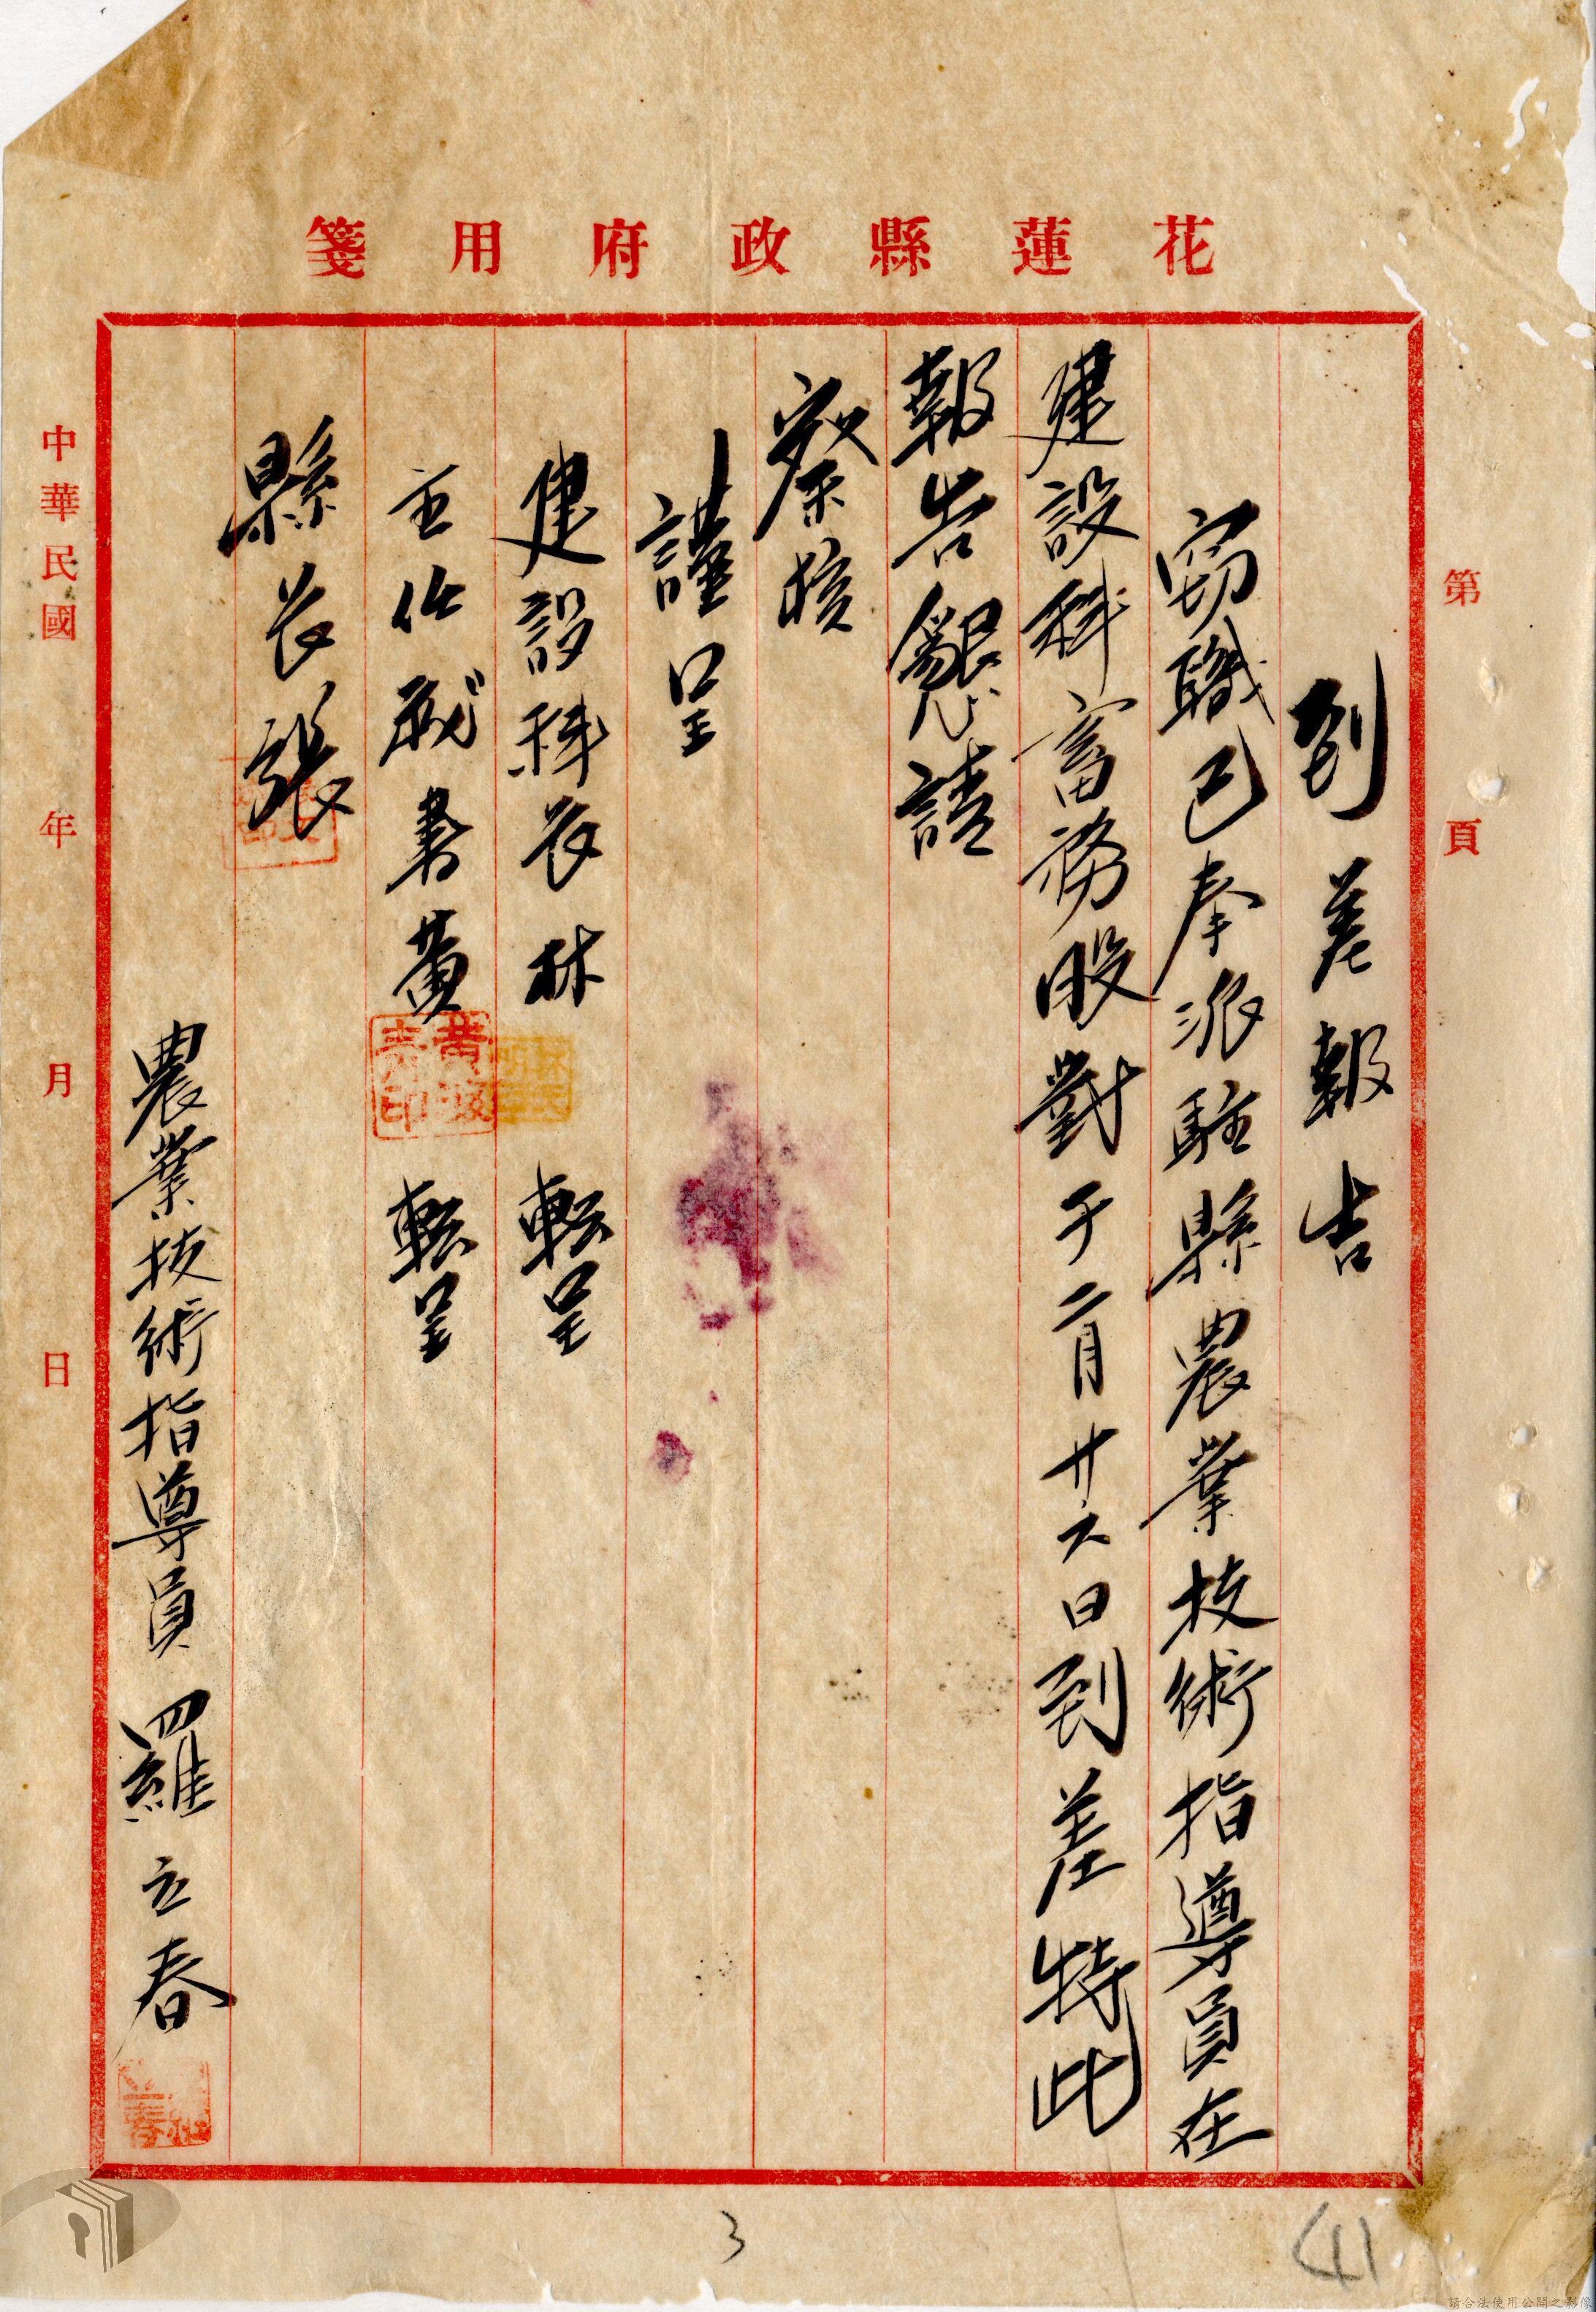 花蓮縣政府用箋
第 頁
到差報告
竊職已奉派駐縣農業技術指導員在
建設科畜務股對于二月廿六日到差特此
報告懇請
察核
謹呈
建設科長林 轉呈
主任秘書黃 轉呈
縣長張
農業技術指導員 羅立春
中華民國 年 月 日
3
41
請合法使用公開之影像